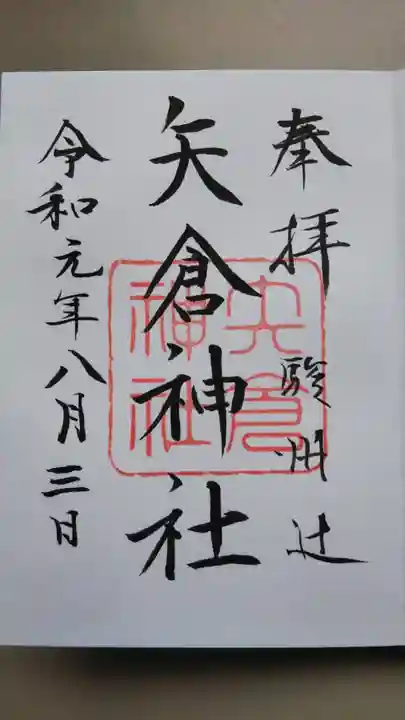 奉拝 駿州辻
矢倉神社
矢倉神社
令和元年八月三日